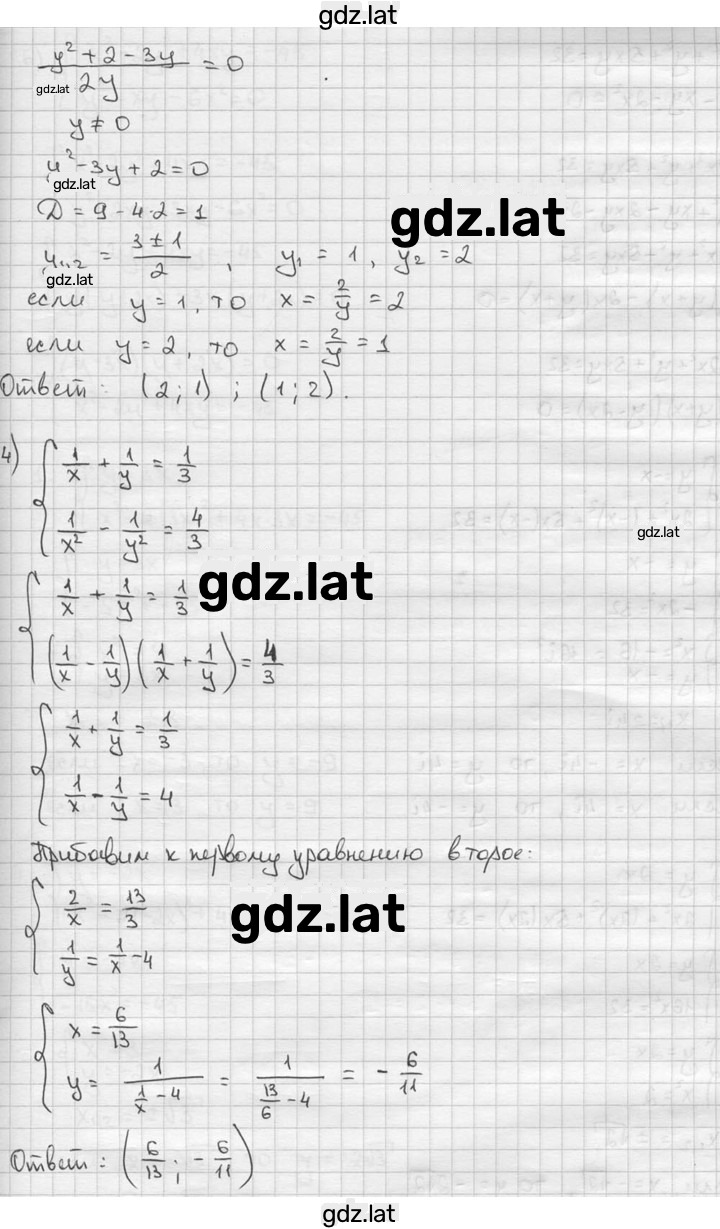 gdz.lat
y² + 2 - 3y / 2y = 0
gdz.lat
y ≠ 0
y² - 3y + 2 = 0
gdz.lat
D = 9 - 4·2 = 1
gdz.lat
y₁,₂ = 3 ± 1 / 2 , y₁ = 1, y₂ = 2
gdz.lat
если y = 1, то x = 2/y = 2
если y = 2, то x = 2/y = 1
Ответ: (2; 1) ; (1; 2).
4) { 1/x + 1/y = 1/3
1/x² - 1/y² = 4/3
gdz.lat
{ 1/x + 1/y = 1/3
gdz.lat
(1/x - 1/y)(1/x + 1/y) = 4/3
{ 1/x + 1/y = 1/3
1/x - 1/y = 4
Прибавим к первому уравнению второе:
{ 2/x = 13/3
gdz.lat
1/y = 1/x - 4
{ x = 6/13
y = 1 / (1/x - 4) = 1 / (13/6 - 4) = - 6/11
Ответ: (6/13 ; - 6/11)
gdz.lat